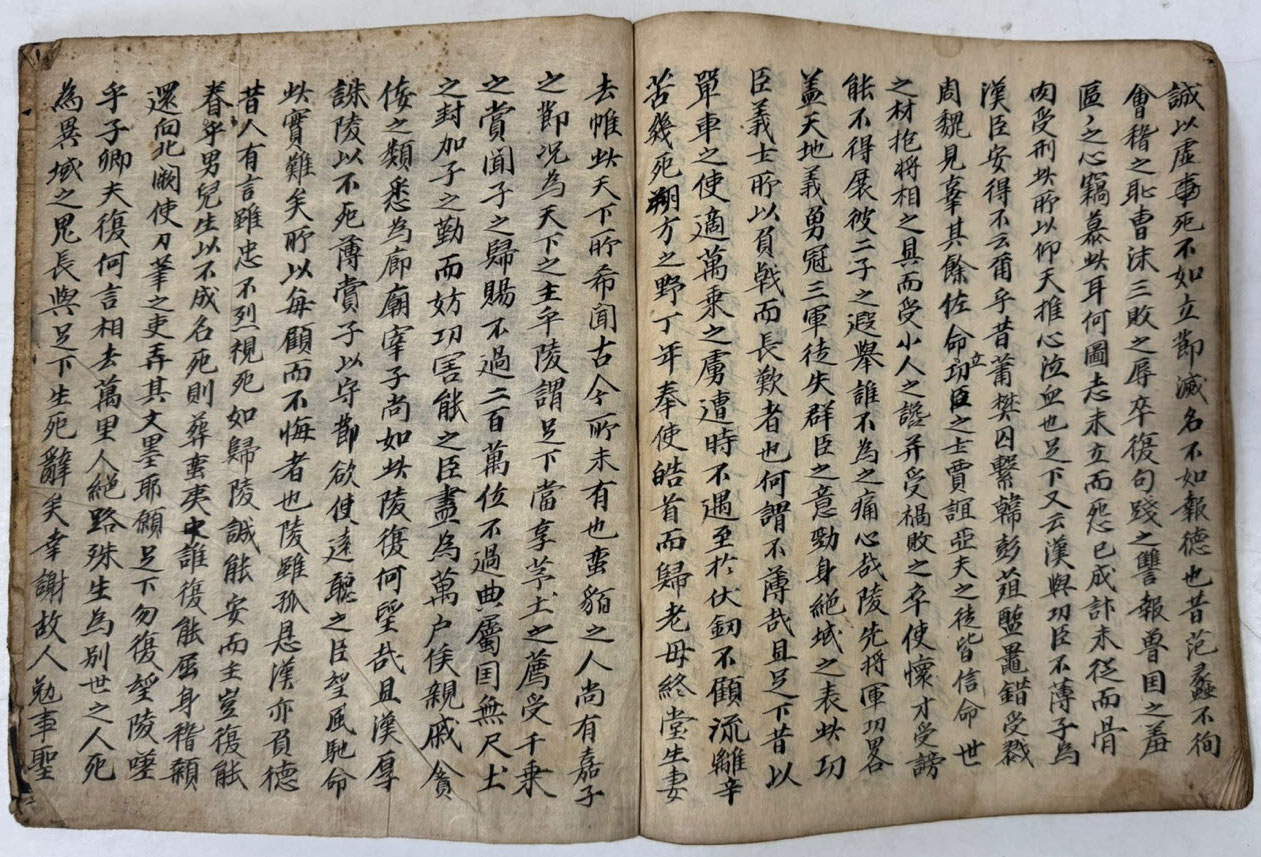 誠以虛死不如立節滅名不如報德也昔范蠡不徇
會稽之恥曹沫三敗之辱卒復句踐之讐報魯国之羞
區〻之心竊慕此耳何圖志未立而怨已成計未從而骨
肉受刑此所以仰天推心泣血也足下又云漢與功臣不薄子為
漢臣安得不云爾乎昔蕭樊囚繫韓彭葅醢鼂錯受戮
周魏見辜其餘佐命立功臣之士賈誼亞夫之徒皆信命世
之材抱將相之具而受小人之讒并受禍敗之卒使懷才受謗
能不得展彼二子之遐舉誰不為之痛心哉陵先將軍功畧
盖天地義勇冠三軍徒失群臣之意剄身絕域之表此功
臣義士所以負戟而長歎者也何謂不薄哉且足下昔以
單車之使適萬乘之虜遭時不遇至於伏劒不顧流離辛
苦幾死朔方之野丁年奉使皓首而歸老母終堂生妻
去帷此天下所希聞古今所未有也蛮貊之人尚有嘉子
之節况為天下之主乎陵謂足下當享茅土之薦受千乘
之賞聞子之歸賜不過二百萬位不過典屬国無尺土
之封加子之勤而妨功害能之臣盡為萬户侯親戚貪
倿之類悉為廊廟宰子尚如此陵復何望哉且漢厚
誅陵以不死薄賞子以守節欲使遠聽之臣望風馳命
此實難矣所以每顧而不悔者也陵雖孤恩漢亦負德
昔人有言雖忠不烈視死如歸陵誠能安而主豈復能
眷乎男兒生以不成名死則葬蛮夷中誰復能屈身稽顙
還向北闕使刀筆之吏弄其文墨耶願足下勿復望陵嗟
乎子卿夫復何言相去萬里人絕路殊生為別世之人死
為異域之鬼長與足下生死辭矣幸謝故人勉事聖